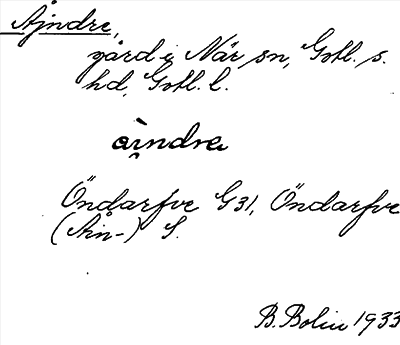 Ajndre,
gård i När sn, Gotl. s.
hd, Gotl. l.
aindra
Öndarfve G31, Öndarfve
(Ain-) S.
B. Bolin 1933